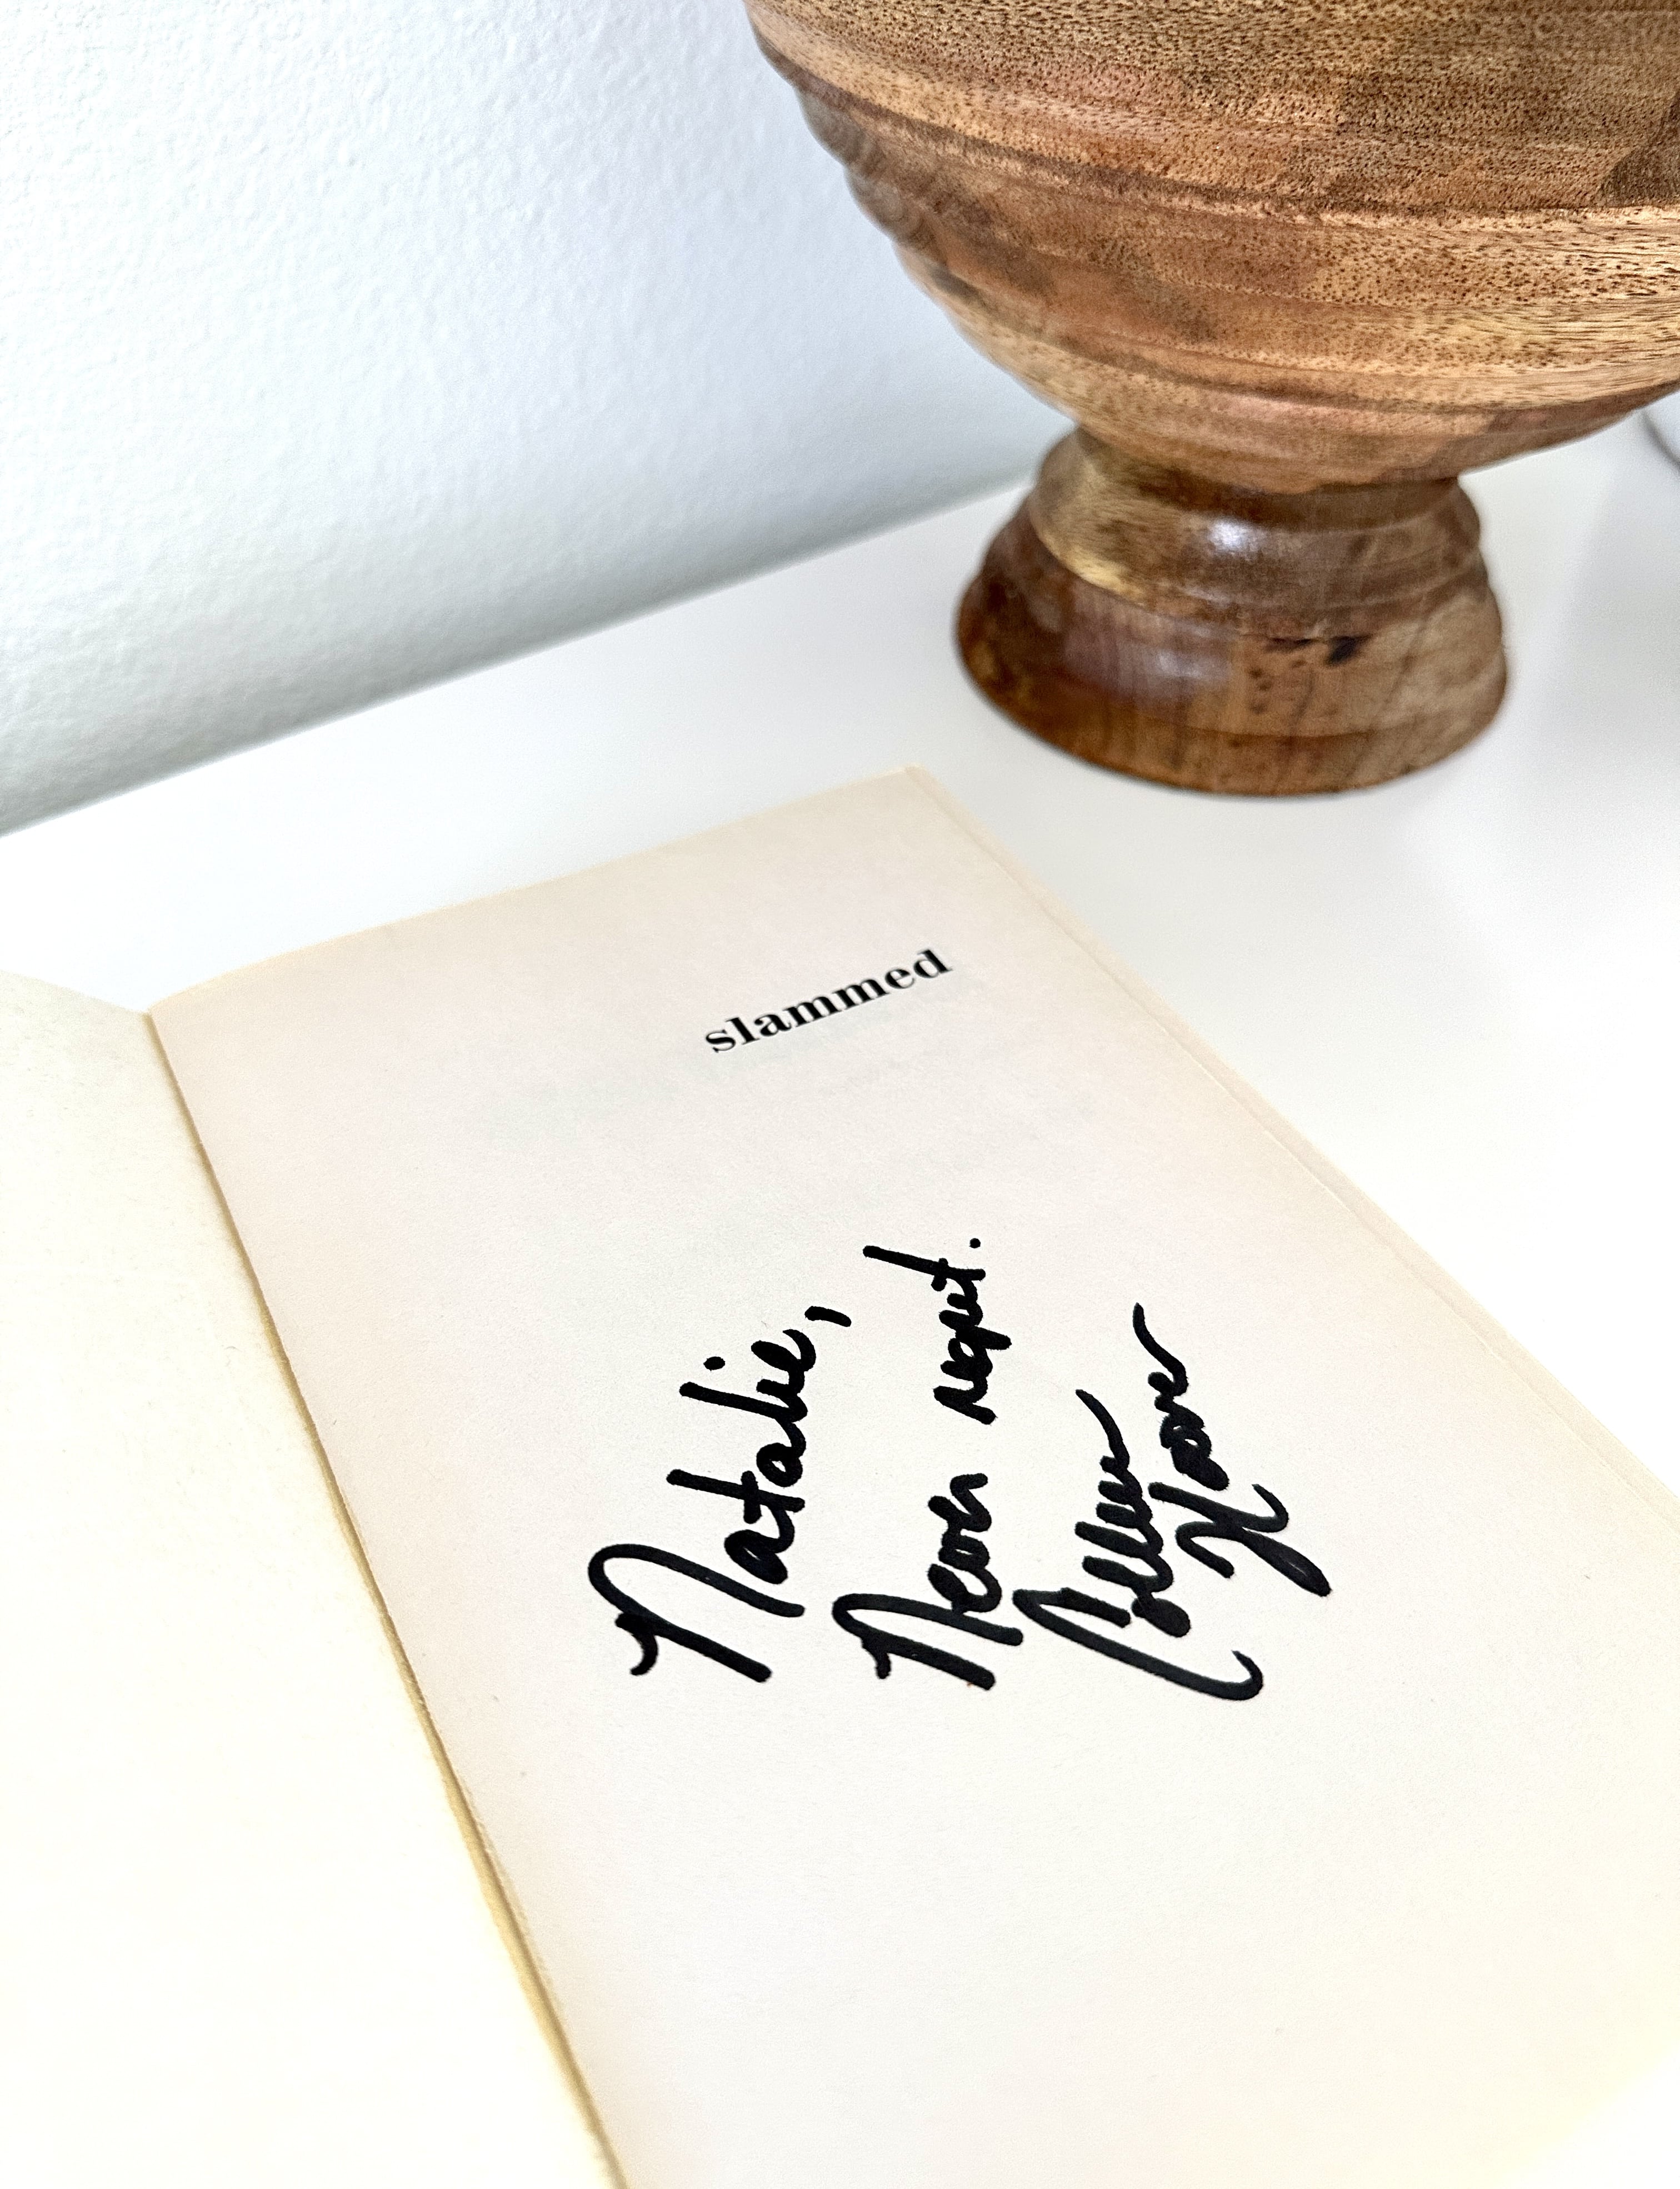 slammed
Natalie,
Never regret.
Colleen
Hoover